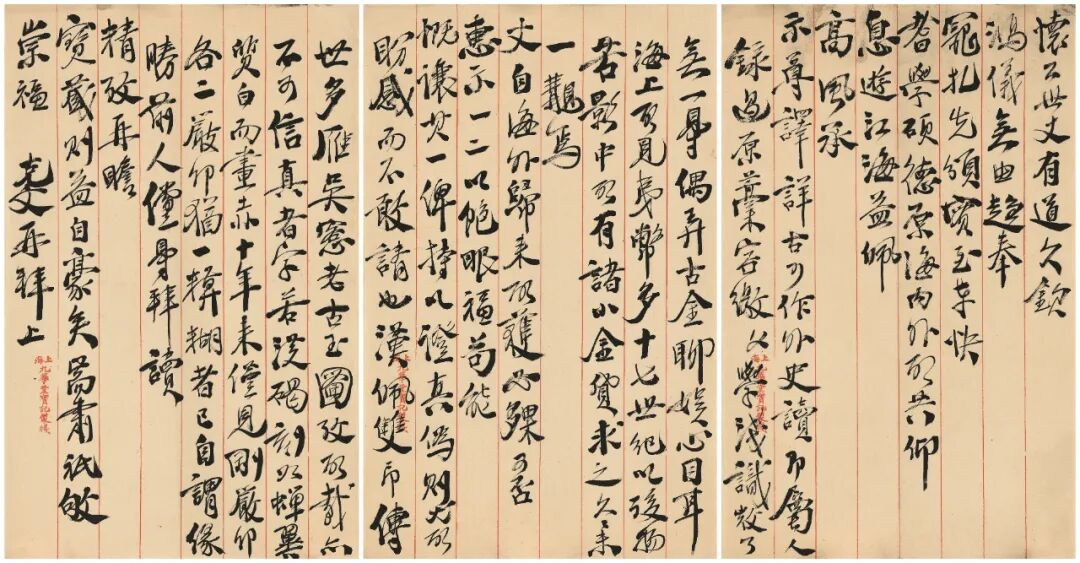 懷公世丈有道久欽
鴻儀無由趨奉
寵札先頒寶玉草快
耆學碩德原海內外所共仰
息遊江海益佩
高風承
示尋譯詳古可作外史讀即屬人
錄過原藁容繳文學淺識
無一專偶弄古金聊娛心目耳
海上所見夷幣多十七世紀以後物
若影中所有諸小金貨求之久未
一覯焉
丈自海外歸來所獲必夥可否
惠示一二以飽眼福苟能
慨讓其一俾持以證真偽則尤所
盼感而不敢請也漢佩雙印傳
世多雁吳窓老古玉圖攷所載亦
不可信真者字若漢碣刻如蟬翼
質白而畫赤十年來僅見剛嚴卯
各二嚴卯猶一模糊者已自謂緣
勝前人僅得拜讀
精攷再瞻
寶藏則益自豪矣耑肅祗敬
崇福 克文再拜上
上海九華堂寶記製箋